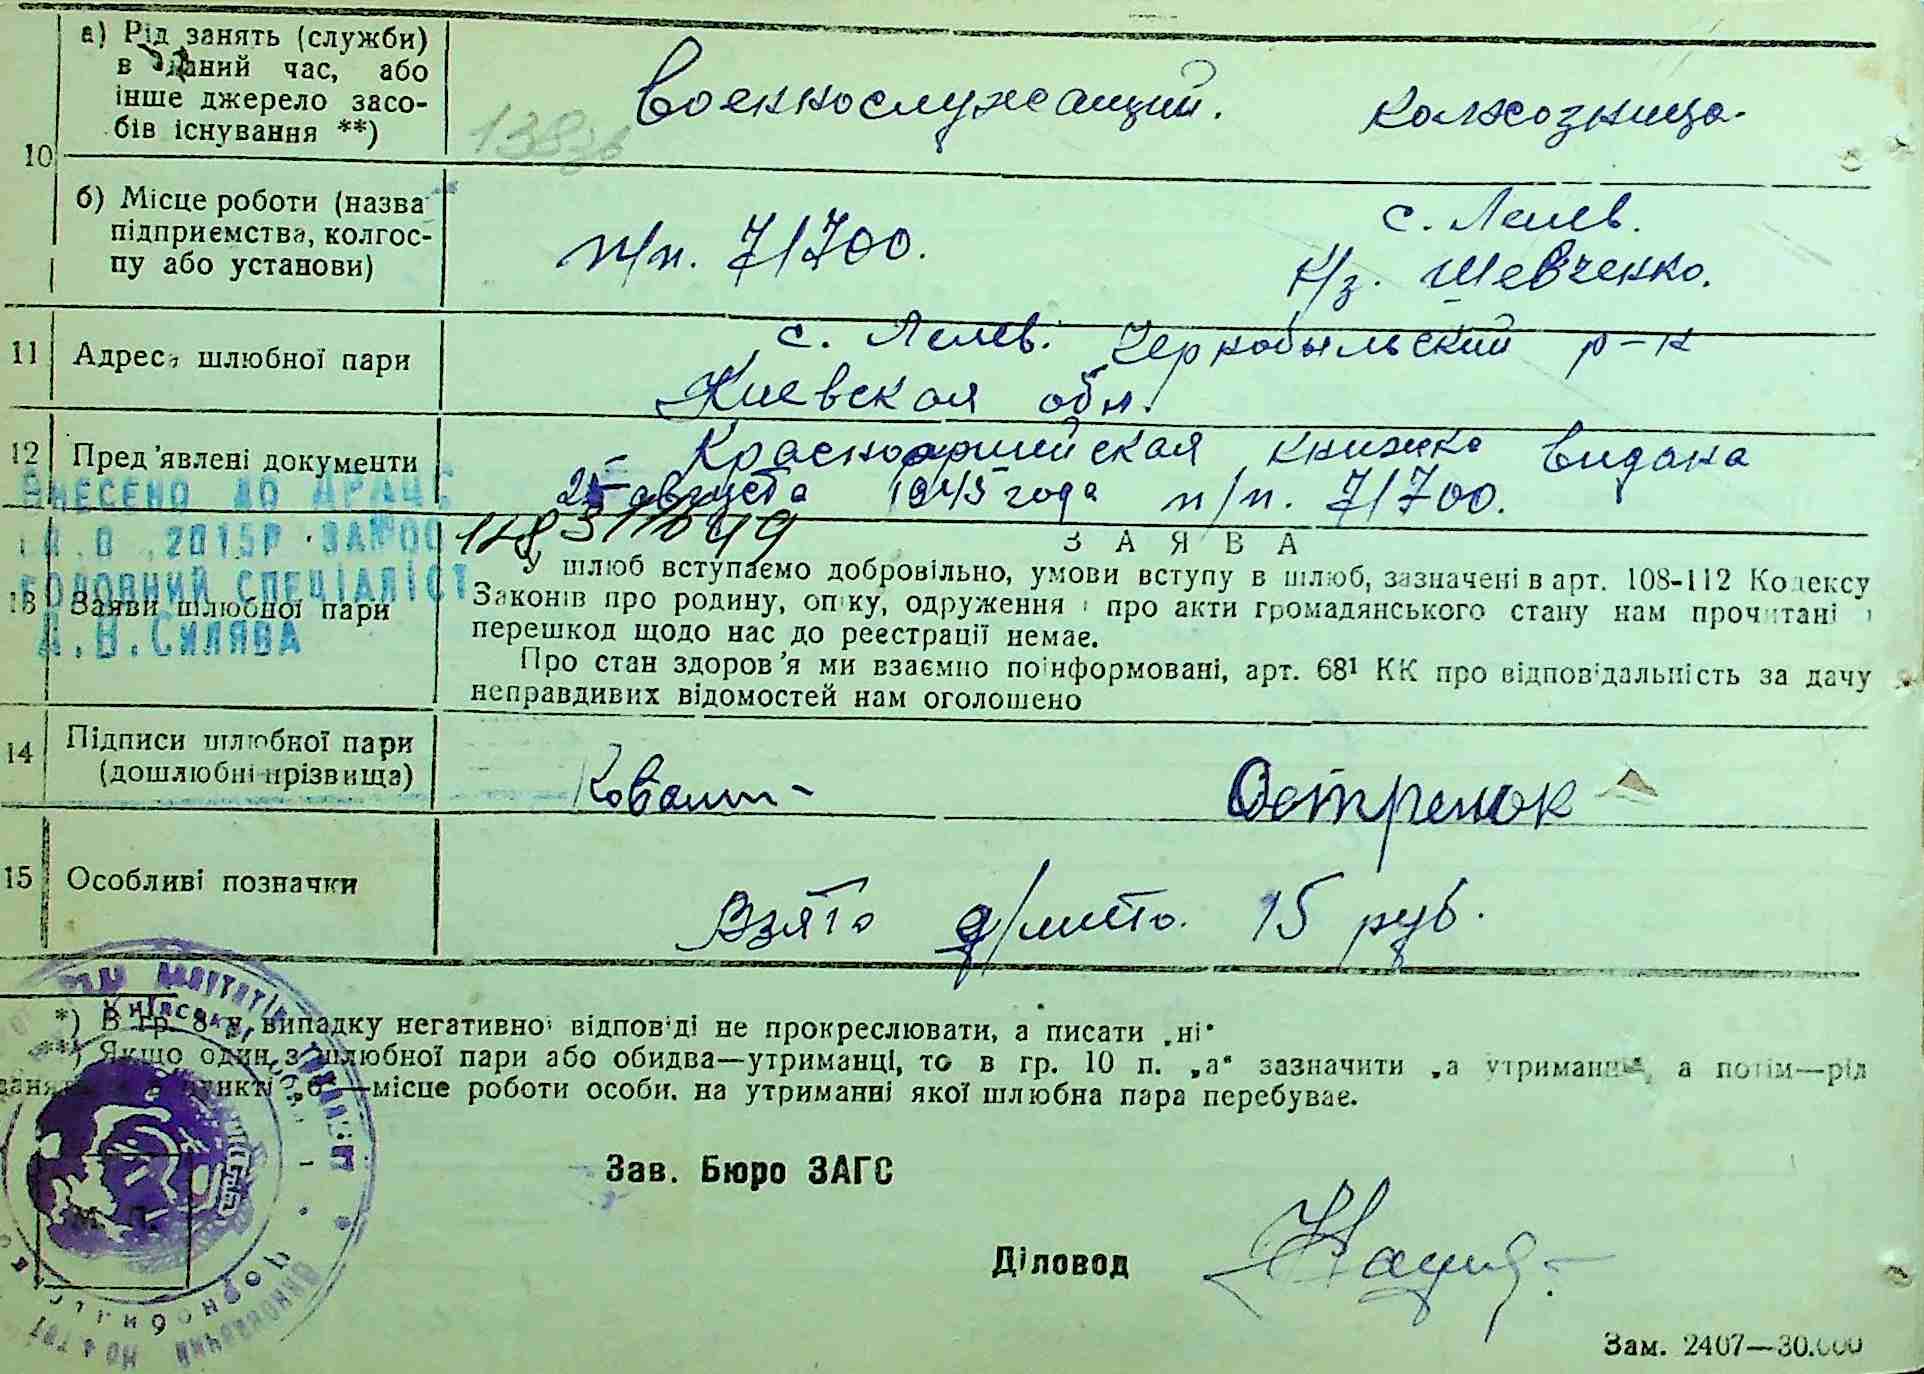 10
а) Рід занять (служби)
в даний час, або
інше джерело засо-
бів існування **)
Военнослужащий. Колхозница.
138зв
б) Місце роботи (назва
підприємства, колгос-
пу або установи)
п/п. 71700.
с. Лелев.
К/з. Шевченко.
11 Адреса шлюбної пари
с. Лелев. Чернобыльский р-н
Киевская обл.
12 Пред'явлені документи
Красноармейская книжка видана
25 августа 1945 года п/п. 71700.
ВНЕСЕНО ДО ДРАЦС
2015Р ЗА №00
ГОЛОВНИЙ СПЕЦІАЛІСТ
А.В.Силява
13 Заяви шлюбної пари
ЗАЯВА
У шлюб вступаємо добровільно, умови вступу в шлюб, зазначені в арт. 108-112 Кодексу
Законів про родину, опіку, одруження і про акти громадянського стану нам прочитані і
перешкод щодо нас до реєстрації немає.
Про стан здоров'я ми взаємно поінформовані, арт. 68¹ КК про відповідальність за дачу
неправдивих відомостей нам оголошено
14 Підписи шлюбної пари
(дошлюбні прізвища)
Остренок
15 Особливі позначки
Взято 15 руб.
*) В гр. 8 у випадку негативної відповіді не прокреслювати, а писати „ні"
**) Якщо один з шлюбної пари або обидва—утриманці, то в гр. 10 п. „а" зазначити „а утриманні", а потім—рід
занять в пункті „б"—місце роботи особи, на утриманні якої шлюбна пара перебуває.
М. П.
Зав. Бюро ЗАГС
Діловод
Зам. 2407—30.000